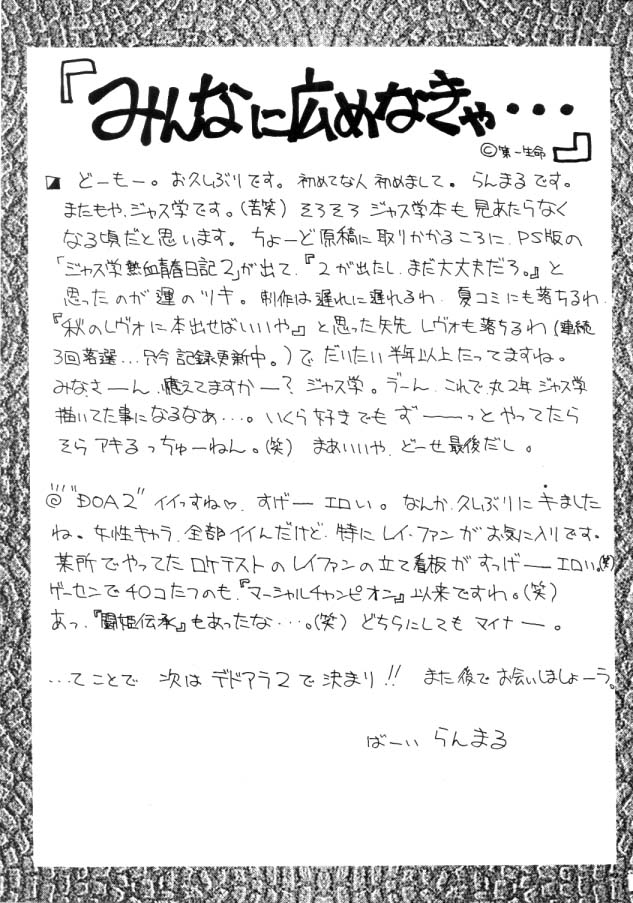 『みんなに広めなきゃ・・・』
©第一生命
◪ どーもー。お久しぶりです。初めてな人 初めまして。らんまるです。
またもや、ジャス学です。(苦笑) そろそろ ジャス学本も 見あたらなく
なる頃だと思います。ちょーど 原稿に取りかかるころに、PS版の
「ジャス学 熱血青春日記2」が出て、『2が出たし、まだ大丈夫だろ。』と
思ったのが 運のツキ。制作は遅れに遅れるわ、夏コミにも落ちるわ、
『秋のレヴォに本出せばいいや』と思った矢先 レヴォも落ちるわ(連続
3回落選...只今 記録更新中。)で だいたい半年以上たってますね。
みなさーん、憶えてますかー? ジャス学。うーん、これで、丸2年 ジャス学
描いてた事になるなあ...。いくら好きでも ずーーーっとやってたら
そら アキるっちゅーねん。(笑) まあいいや、どーせ最後だし。
@ "DOA2" イイっすね♡、すげー エロい。なんか、久しぶりに キました
ね。女性キャラ、全部イイんだけど、特に レイ・ファンがお気に入りです。
某所でやってた ロケテストの レイファンの立て看板が すっげー エロい。(笑)
ゲーセンで 40コたつのも、『マーシャルチャンピオン』以来ですわ。(笑)
あっ、『闘姫伝承』もあったな・・・。(笑) どちらにしても マイナー。
...てことで 次は デドアラ2で 決まり!! また後で お会いしましょーう。
ばーい らんまる